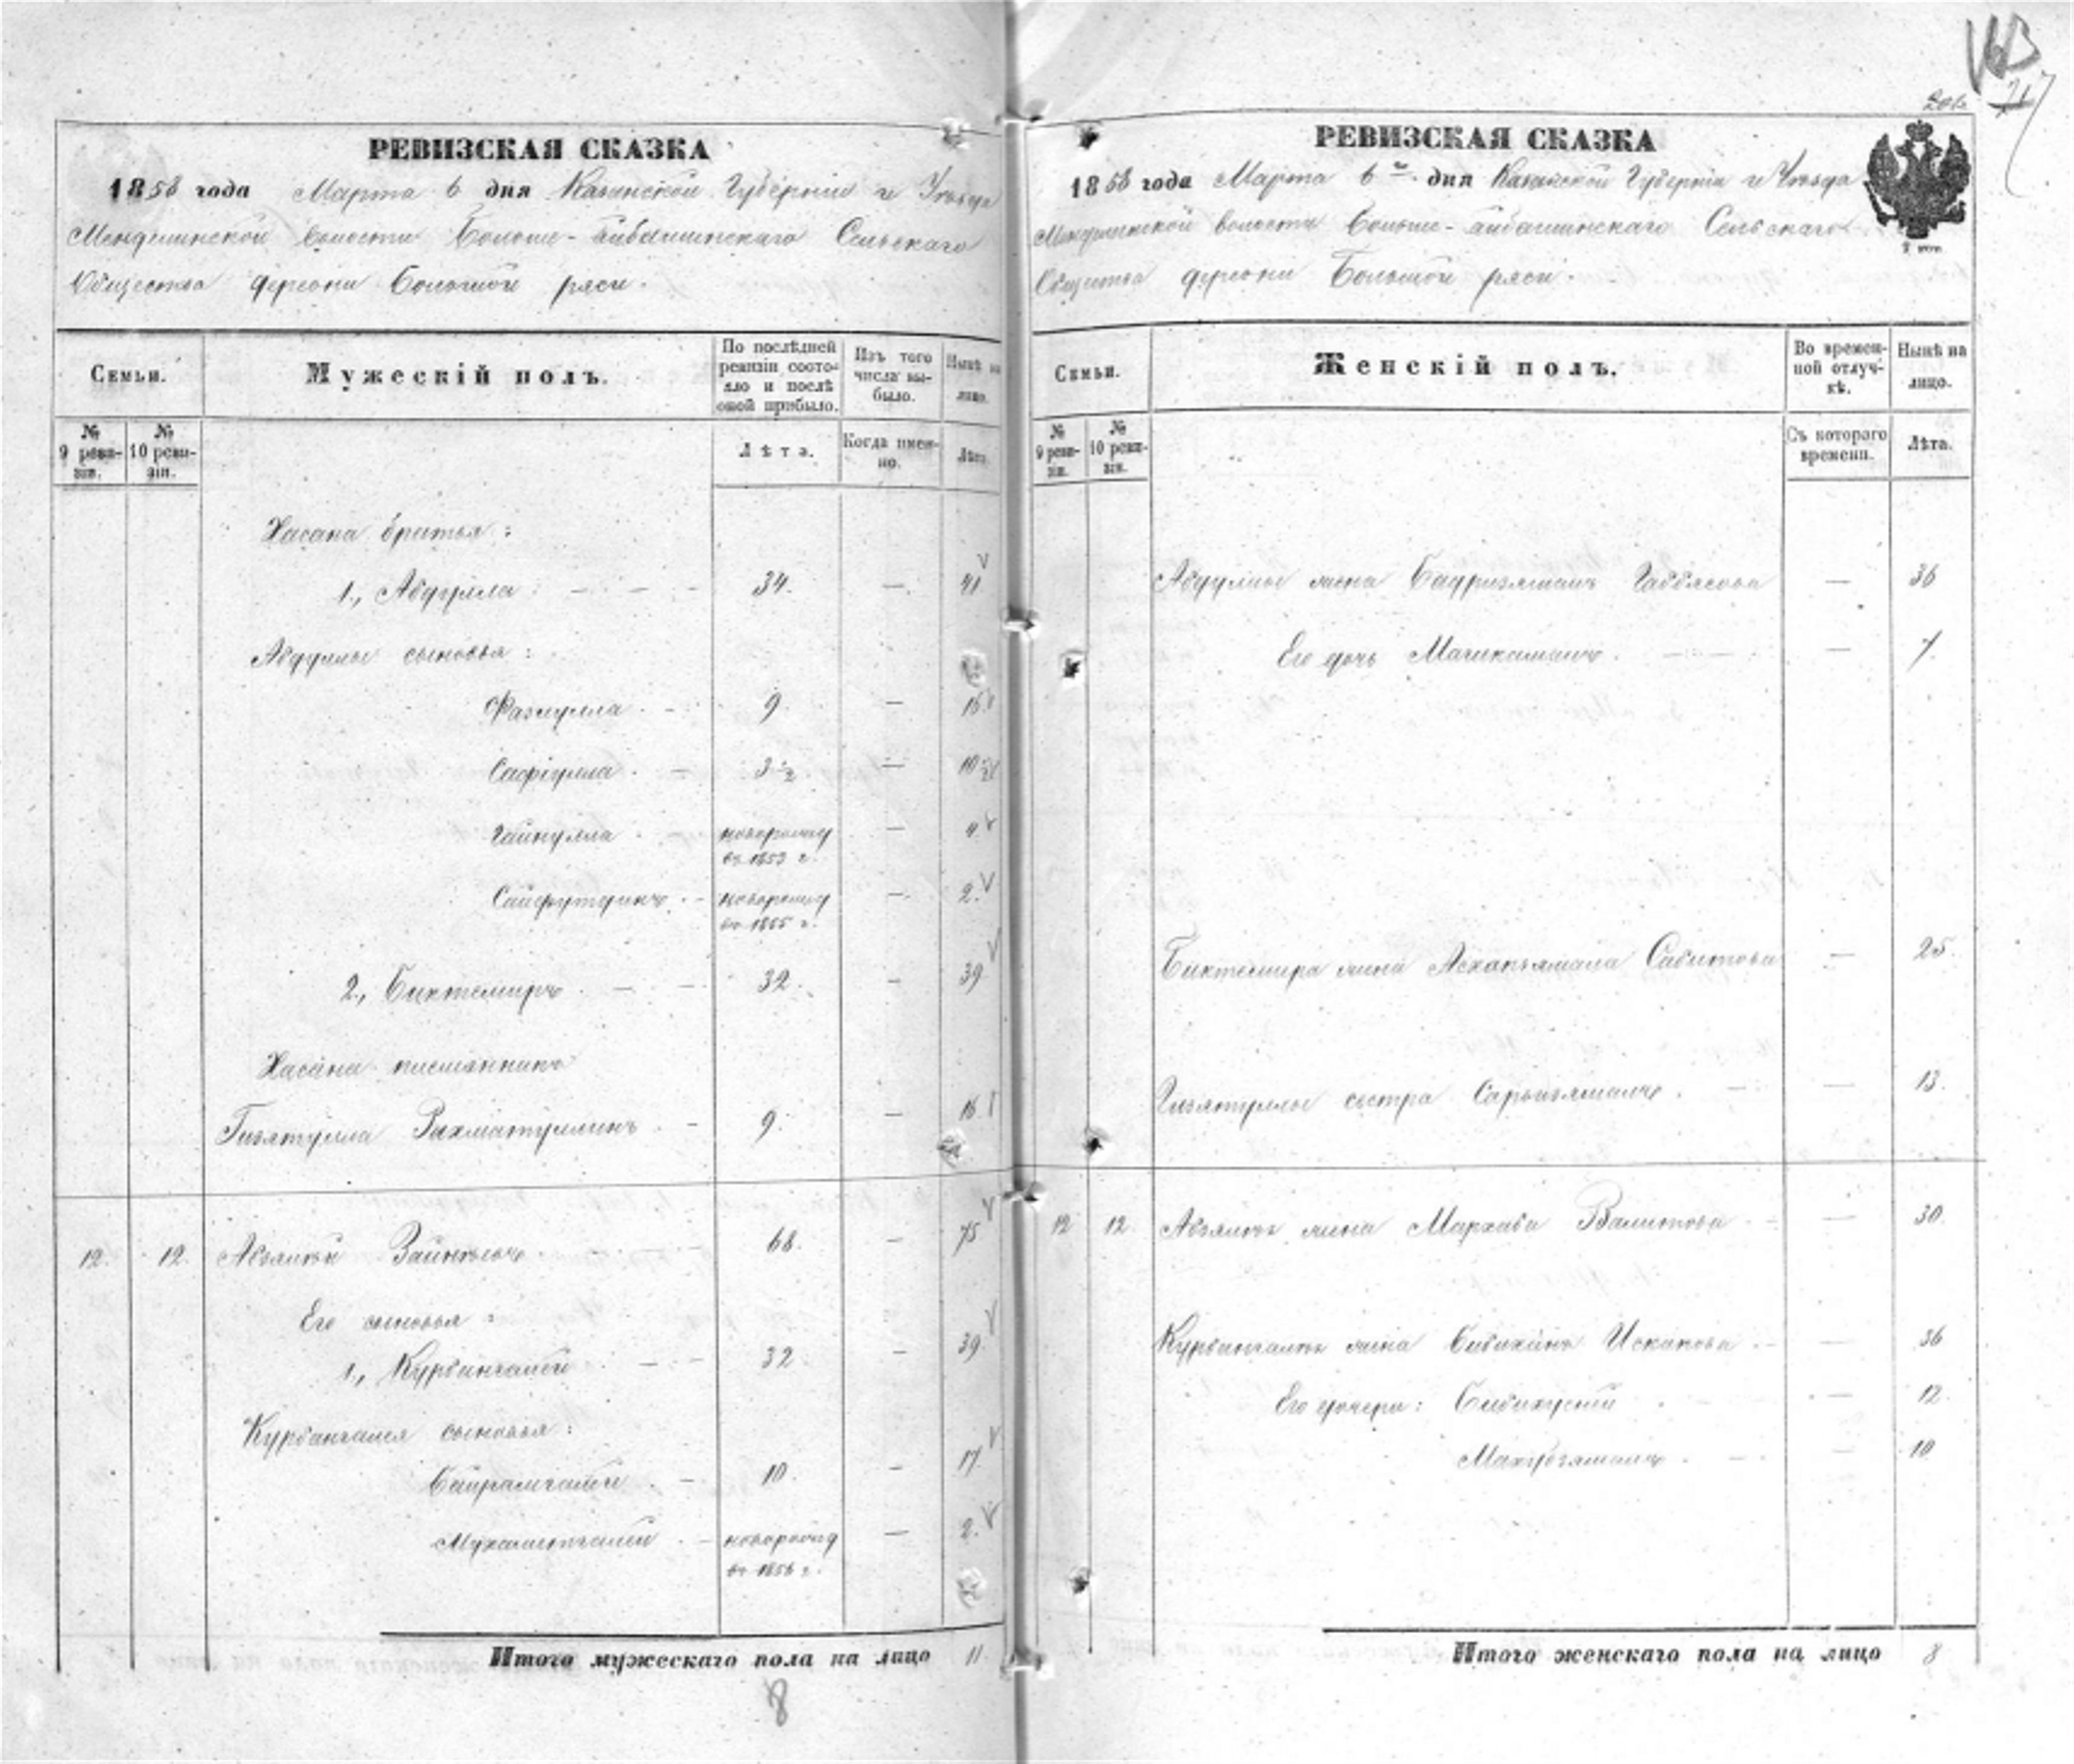 РЕВИЗСКАЯ СКАЗКА
1858 года Марта 6 дня Казанской Губерніи и Уѣзда
Менделинской волости Больше-Айбашинскаго Сельскаго
Общества деревни Большой ряси.
Семьи.
Мужескій полъ.
По послѣдней ревизіи состояло и послѣ оной прибыло.
Изъ того числа выбыло.
Нынѣ на лицо.
№ 9 ревизіи.
№ 10 ревизіи.
Лѣта.
Когда именно.
Лѣта.
Хасана братья:
1., Абдулла - - - 34. — 41
Абдуллы сыновья:
Фазлулла - 9 — 16
Сафіулла. - 3 1/2 — 10 1/2
Гайнулла - новорожд въ 1853 г. — 4
Сайфутдинъ - новорожд въ 1855 г. — 2.
2., Биктемиръ - - 32. — 39
Хасана племянникъ
Гизятулла Рахматуллинъ - 9. — 16.
12. 12. Абзялей Зайнъ - 68. — 75
Его сыновья:
1., Курбангалей - - 32 — 39
Курбангалея сыновья:
Байрамгалей - 10. — 17
Мухаметгалей - новорожд въ 1856 г. — 2.
Итого мужескаго пола на лицо 11.
8
РЕВИЗСКАЯ СКАЗКА
1858 года Марта 6 дня Казанской Губерніи и Уѣзда
Менделинской волости Больше-Айбашинскаго Сельскаго
Общества деревни Большой ряси.
Семьи.
Женскій полъ.
Во временной отлучкѣ.
Нынѣ на лицо.
№ 9 ревизіи.
№ 10 ревизіи.
Съ котораго времени.
Лѣта.
Абдуллы жена Бадризямалъ Габбясова — 36
Его дочь — 7.
Биктемира жена Сабитова — 25.
Гизятуллы сестра — 13.
12 12. Абзялея жена Мархаба Валитова — 30.
Курбангалея жена Бибиханъ Искакова — 36
Его дочери: — 12.
— 10
Итого женскаго пола на лицо 8